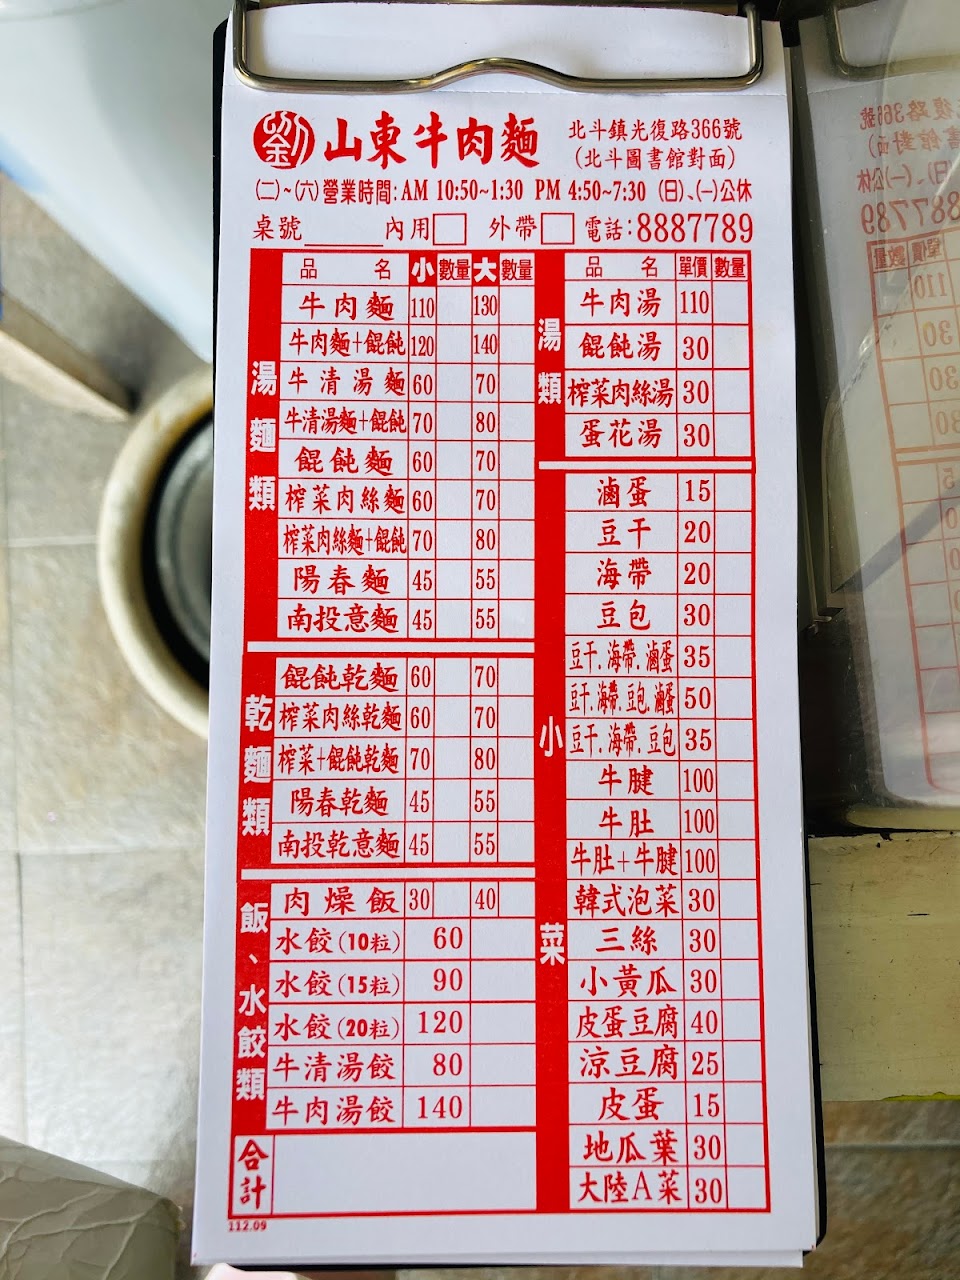 劉 山東牛肉麵 北斗鎮光復路366號
(北斗圖書館對面)
(二)~(六)營業時間:AM 10:50~1:30 PM 4:50~7:30 (日)、(一)公休
桌號______內用□ 外帶□ 電話:8887789
湯麵類
品名 小 數量 大 數量
牛肉麵 110 130
牛肉麵+餛飩 120 140
牛清湯麵 60 70
牛清湯麵+餛飩 70 80
餛飩麵 60 70
榨菜肉絲麵 60 70
榨菜肉絲麵+餛飩 70 80
陽春麵 45 55
南投意麵 45 55
乾麵類
餛飩乾麵 60 70
榨菜肉絲乾麵 60 70
榨菜+餛飩乾麵 70 80
陽春乾麵 45 55
南投乾意麵 45 55
飯、水餃類
肉燥飯 30 40
水餃(10粒) 60
水餃(15粒) 90
水餃(20粒) 120
牛清湯餃 80
牛肉湯餃 140
合計
112.09
湯類
品名 單價 數量
牛肉湯 110
餛飩湯 30
榨菜肉絲湯 30
蛋花湯 30
小菜
滷蛋 15
豆干 20
海帶 20
豆包 30
豆干.海帶.滷蛋 35
豆干.海帶.豆包.滷蛋 50
豆干.海帶.豆包 35
牛腱 100
牛肚 100
牛肚+牛腱 100
韓式泡菜 30
三絲 30
小黃瓜 30
皮蛋豆腐 40
涼豆腐 25
皮蛋 15
地瓜葉 30
大陸A菜 30